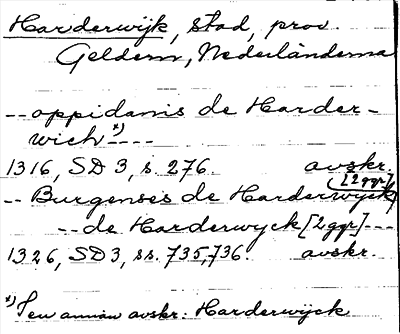 Harderwijk, stad, prov.
Geldern, Nederländerna
-- oppidanis de Harder-
wich *) ----
1316, SD 3, s. 276. avskr.
-- Burgenses de Harderwyck [2 ggr]
-- de Harderwyck [2 ggr] ---
1326, SD 3, ss. 735, 736. avskr.
*) I en annan avskr. Harderwijck